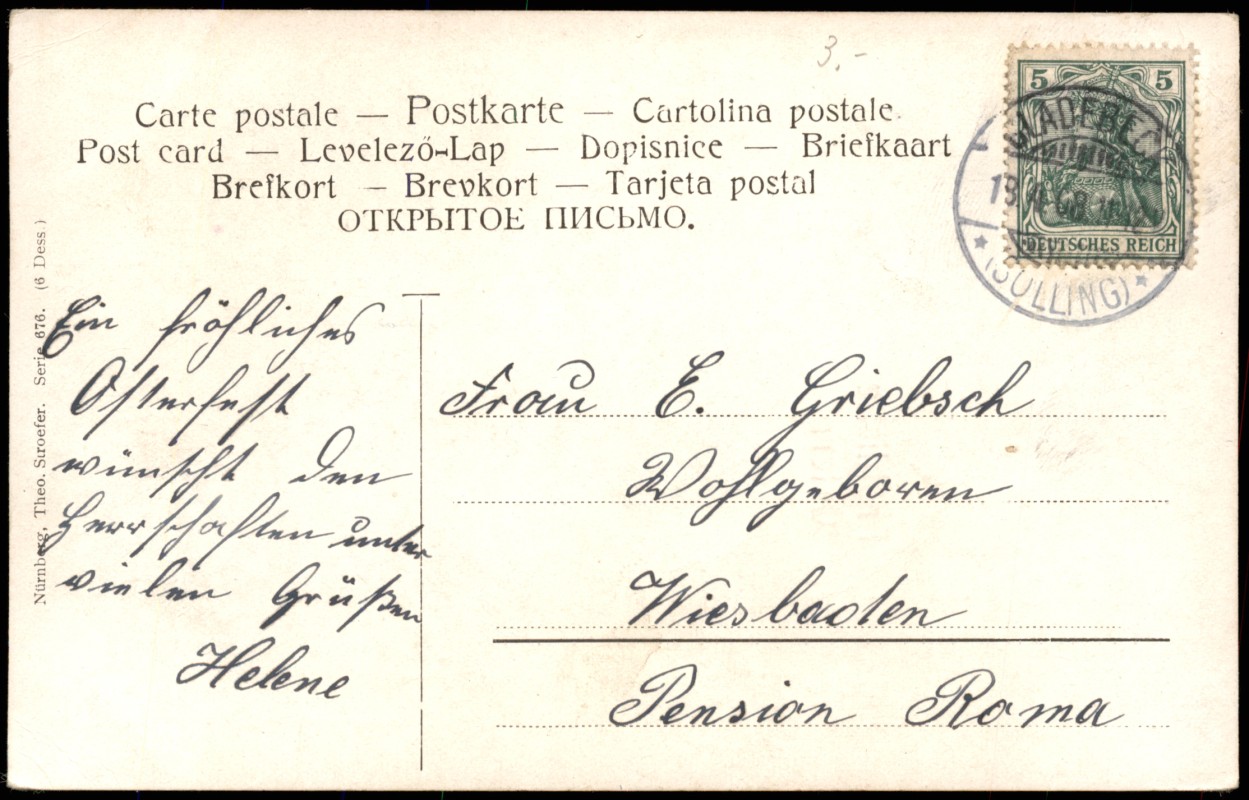 3.-
Carte postale — Postkarte — Cartolina postale.
Post card — Levelező-Lap — Dopisnice — Briefkaart
Brefkort — Brevkort — Tarjeta postal
ОТКРЫТОЕ ПИСЬМО.
5 5
DEUTSCHES REICH
GLADEBECK
(SOLLING)
Nürnberg, Theo. Stroefer. Serie 676. (6 Dess.)
Ein fröhliches
Osterfest
wünscht den
Herrschaften unter
vielen Grüßen
Helene
Frau E. Griebsch
Wohlgeboren
Wiesbaden
Pension Roma